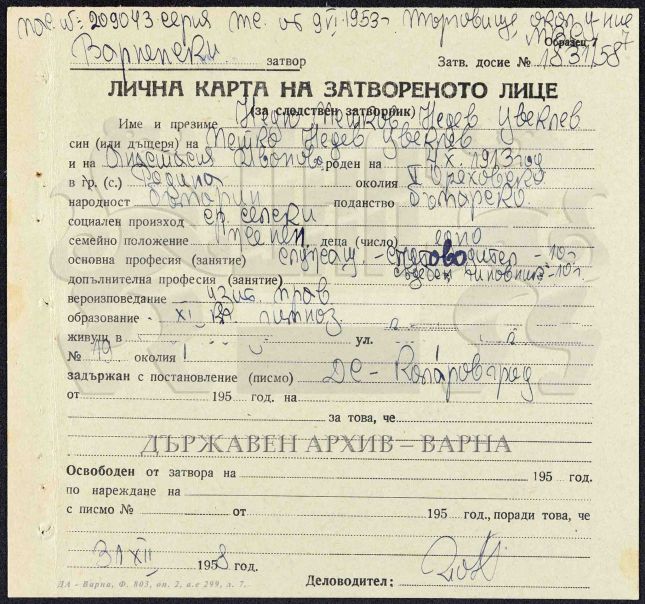 пас. №: 209043 серия от 9 VI. 1953 - Търговище, окол. у-ние
Образец 7
Варненски затвор Затв. досие № 1831/58
ЛИЧНА КАРТА НА ЗАТВОРЕНОТО ЛИЦЕ
(за следствен затворник)
Име и презиме Недев Цвеклев
син (или дъщеря) на Петко Недев Цвеклев
и на Анастасия роден на 4 X. 1913 год
в гр. (с.) Родина околия Г. Ореховска
народност българин поданство българско
социален произход ср. селски
семейно положение женен, деца (число) едно
основна професия (занятие) служащ - счетоводител - 10 г.
допълнителна професия (занятие) съдебен чиновник - 10 г.
вероизповедание изт. прав
образование XI гимназ.
живущ в ул.
№ 19 околия
задържан с постановление (писмо) ДС - Коларовград
от 195 год. на
за това, че
ДЪРЖАВЕН АРХИВ – ВАРНА
Освободен от затвора на 195 год.
по нареждане на
с писмо № от 195 год., поради това, че
31 XII 1958 год.
Деловодител:
ДА - Варна, Ф. 803, оп. 2, а.е 299, л. 7.